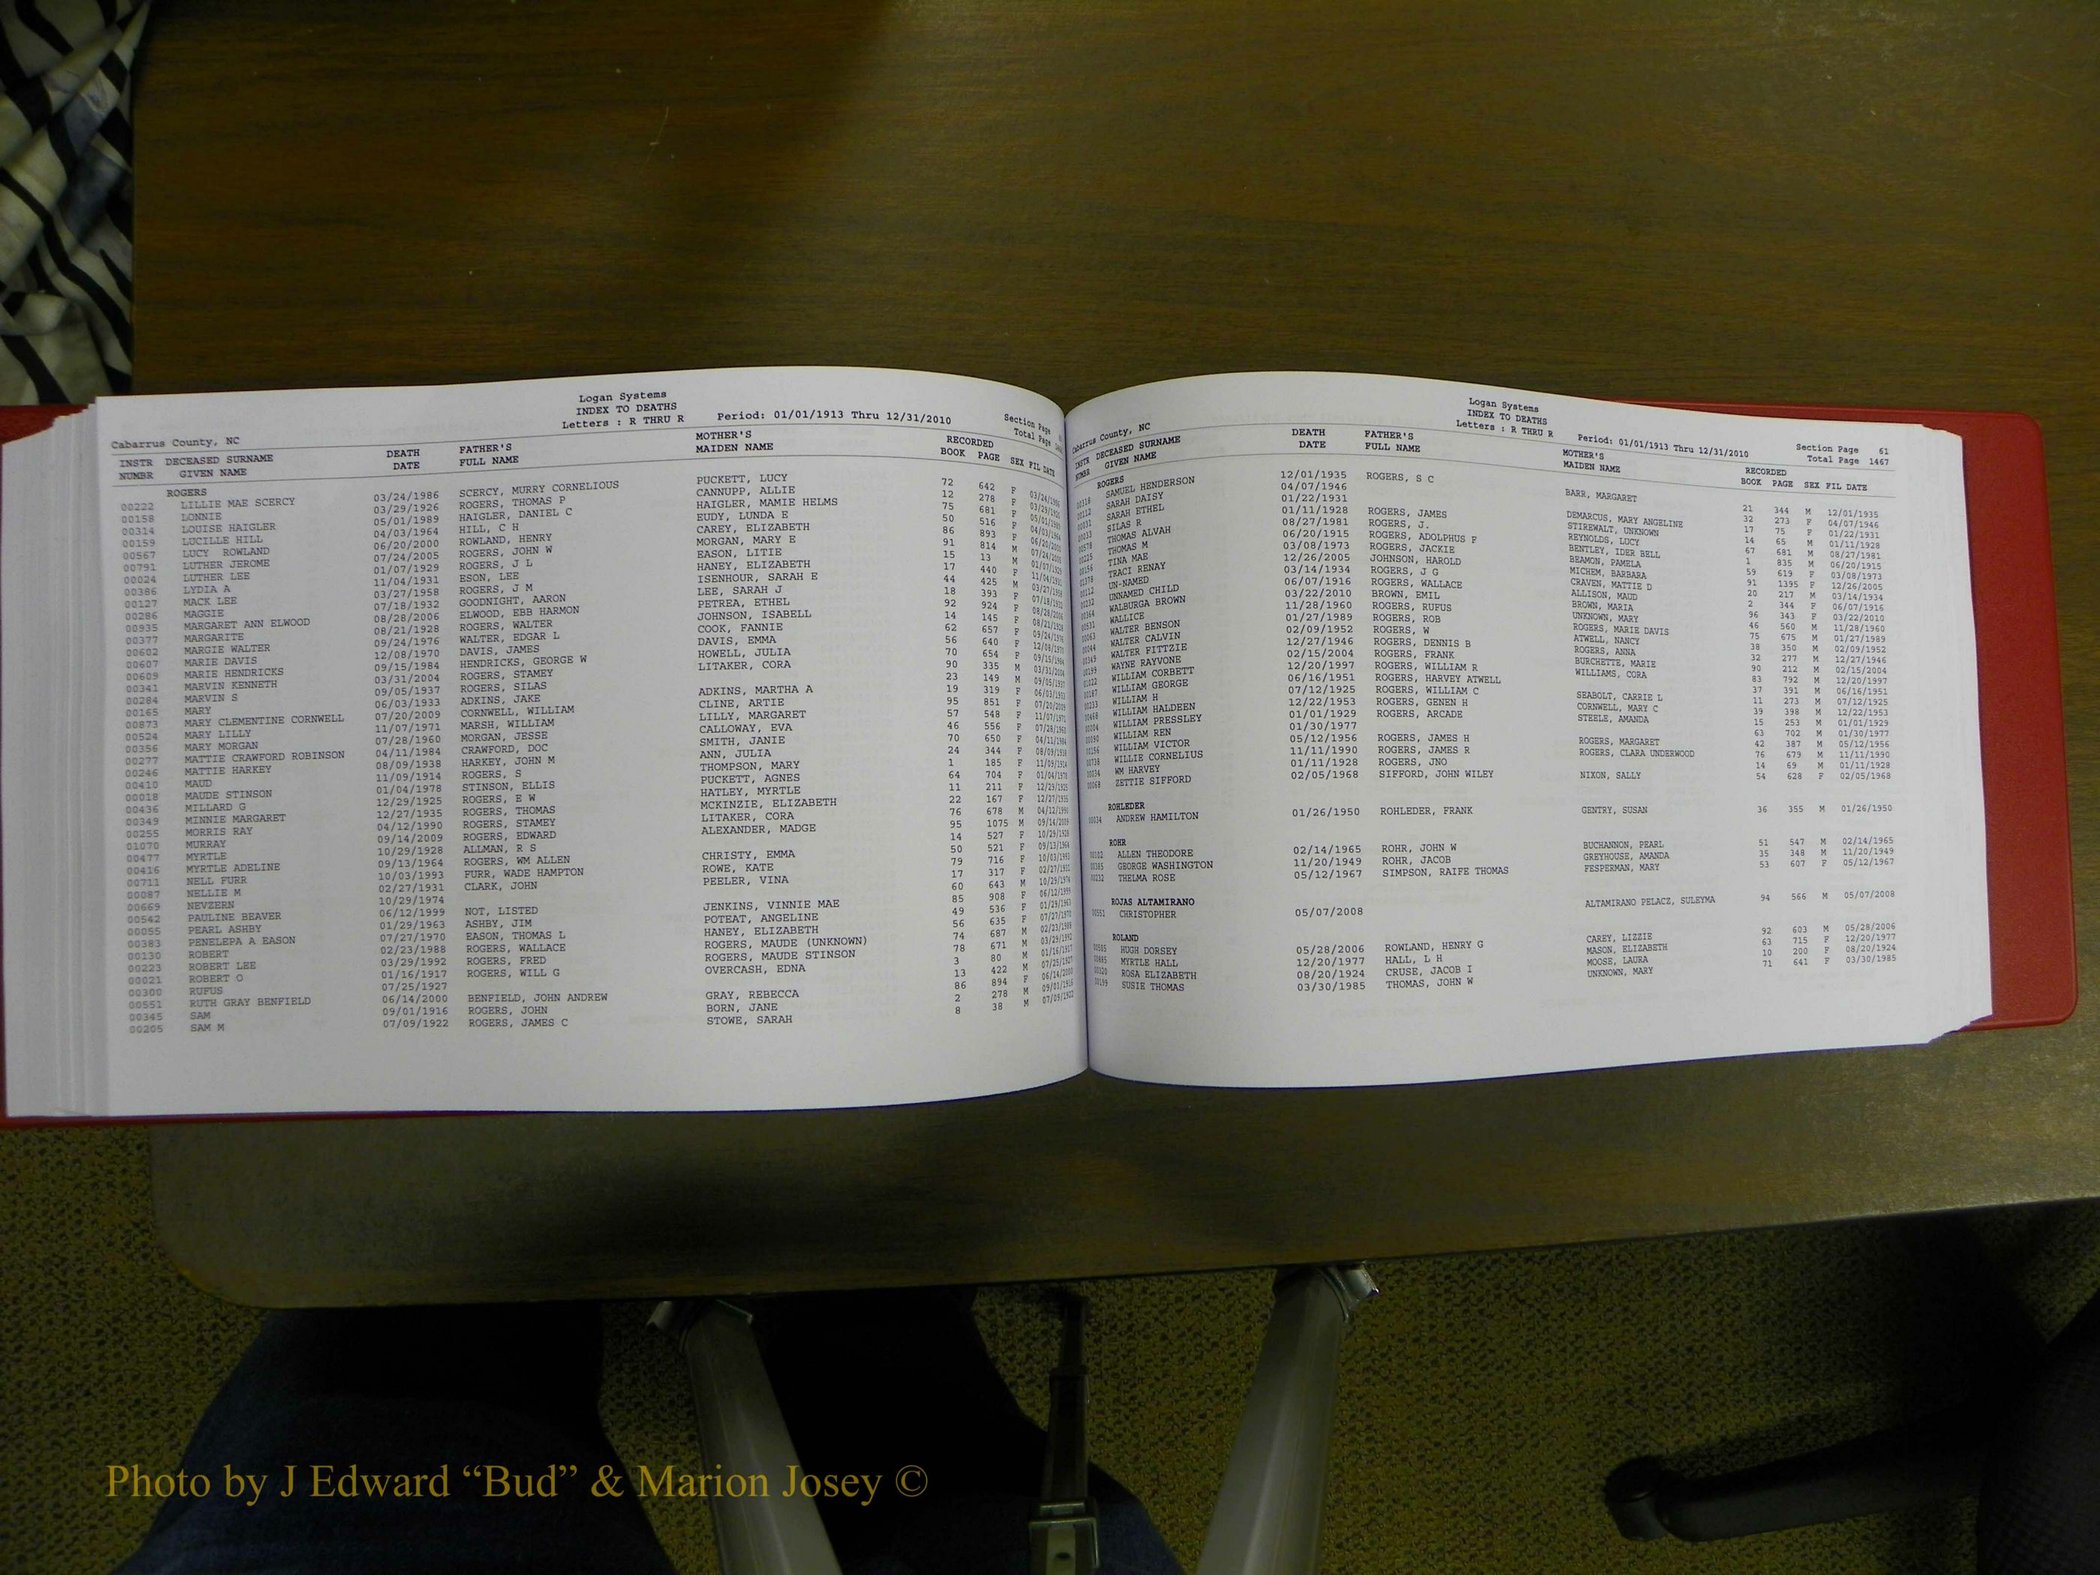 Logan Systems
INDEX TO DEATHS
Cabarrus County, NC Letters : R THRU R Period: 01/01/1913 Thru 12/31/2010 Section Page
Total Page
INSTR DECEASED SURNAME DEATH FATHER'S MOTHER'S RECORDED
NUMBR GIVEN NAME DATE FULL NAME MAIDEN NAME BOOK PAGE SEX FIL DATE
ROGERS
00222 LILLIE MAE SCERCY 03/24/1986 SCERCY, MURRY CORNELIOUS PUCKETT, LUCY 72 642 F 03/24/1986
00158 LONNIE 03/29/1926 ROGERS, THOMAS P CANNUPP, ALLIE 12 278 F 03/29/1926
00314 LOUISE HAIGLER 05/01/1989 HAIGLER, DANIEL C HAIGLER, MAMIE HELMS 75 681 F 05/01/1989
00159 LUCILLE HILL 04/03/1964 HILL, C H EUDY, LUNDA E 50 516 F 04/03/1964
00567 LUCY ROWLAND 06/20/2000 ROWLAND, HENRY CAREY, ELIZABETH 86 893 F 06/20/2000
00791 LUTHER JEROME 07/24/2005 ROGERS, JOHN W MORGAN, MARY E 91 814 M 07/24/2005
00024 LUTHER LEE 01/07/1929 ROGERS, J L EASON, LITIE 15 13 M 01/07/1929
00386 LYDIA A 11/04/1931 ESON, LEE HANEY, ELIZABETH 17 440 F 11/04/1931
00127 MACK LEE 03/27/1958 ROGERS, J M ISENHOUR, SARAH E 44 425 M 03/27/1958
00286 MAGGIE 07/18/1932 GOODNIGHT, AARON LEE, SARAH J 18 393 F 07/18/1932
00935 MARGARET ANN ELWOOD 08/28/2006 ELWOOD, EBB HARMON PETREA, ETHEL 92 924 F 08/28/2006
00377 MARGARITE 08/21/1928 ROGERS, WALTER JOHNSON, ISABELL 14 145 F 08/21/1928
00602 MARGIE WALTER 09/24/1976 WALTER, EDGAR L COOK, FANNIE 62 657 F 09/24/1976
00607 MARIE DAVIS 12/08/1970 DAVIS, JAMES DAVIS, EMMA 56 640 F 12/08/1970
00609 MARIE HENDRICKS 09/15/1984 HENDRICKS, GEORGE W HOWELL, JULIA 70 654 F 09/15/1984
00341 MARVIN KENNETH 03/31/2004 ROGERS, STAMEY LITAKER, CORA 90 335 M 03/31/2004
00284 MARVIN S 09/05/1937 ROGERS, SILAS 23 149 M 09/05/1937
00165 MARY 06/03/1933 ADKINS, JAKE ADKINS, MARTHA A 19 319 F 06/03/1933
00873 MARY CLEMENTINE CORNWELL 07/20/2009 CORNWELL, WILLIAM CLINE, ARTIE 95 851 F 07/20/2009
00524 MARY LILLY 11/07/1971 MARSH, WILLIAM LILLY, MARGARET 57 548 F 11/07/1971
00356 MARY MORGAN 07/28/1960 MORGAN, JESSE CALLOWAY, EVA 46 556 F
00277 MATTIE CRAWFORD ROBINSON 04/11/1984 CRAWFORD, DOC SMITH, JANIE 70 650 F 04/11/1984
00246 MATTIE HARKEY 08/09/1938 HARKEY, JOHN M ANN, JULIA 24 344 F 08/09/1938
00410 MAUD 11/09/1914 ROGERS, S THOMPSON, MARY 1 185 F 11/09/1914
00018 MAUDE STINSON 01/04/1978 STINSON, ELLIS PUCKETT, AGNES 64 704 F 01/04/1978
00436 MILLARD G 12/29/1925 ROGERS, E W HATLEY, MYRTLE 11 211 F 12/29/1925
00349 MINNIE MARGARET 12/27/1935 ROGERS, THOMAS MCKINZIE, ELIZABETH 22 167 F 12/27/1935
00255 MORRIS RAY 04/12/1990 ROGERS, STAMEY LITAKER, CORA 76 678 M 04/12/1990
01070 MURRAY 09/14/2009 ROGERS, EDWARD ALEXANDER, MADGE 95 1075 M 09/14/2009
00477 MYRTLE 10/29/1928 ALLMAN, R S 14 527 F 10/29/1928
00416 MYRTLE ADELINE 09/13/1964 ROGERS, WM ALLEN CHRISTY, EMMA 50 521 F 09/13/1964
00711 NELL FURR 10/03/1993 FURR, WADE HAMPTON ROWE, KATE 79 716 F 10/03/1993
00087 NELLIE M 02/27/1931 CLARK, JOHN PEELER, VINA 17 317 F 02/27/1931
00669 NEVZERN 10/29/1974 60 643 M 10/29/1974
00542 PAULINE BEAVER 06/12/1999 NOT, LISTED JENKINS, VINNIE MAE 85 908 F 06/12/1999
00055 PEARL ASHBY 01/29/1963 ASHBY, JIM POTEAT, ANGELINE 49 536 F 01/29/1963
00383 PENELEPA A EASON 07/27/1970 EASON, THOMAS L HANEY, ELIZABETH 56 635 F 07/27/1970
00130 ROBERT 02/23/1988 ROGERS, WALLACE ROGERS, MAUDE (UNKNOWN) 74 687 M 02/23/1988
00223 ROBERT LEE 03/29/1992 ROGERS, FRED ROGERS, MAUDE STINSON 78 671 M 03/29/1992
00021 ROBERT O 01/16/1917 ROGERS, WILL G OVERCASH, EDNA 3 80 M 01/16/1917
00300 RUFUS 07/25/1927 13 422 M 07/25/1927
00551 RUTH GRAY BENFIELD 06/14/2000 BENFIELD, JOHN ANDREW GRAY, REBECCA 86 894 F 06/14/2000
00345 SAM 09/01/1916 ROGERS, JOHN BORN, JANE 2 278 M 09/01/1916
00205 SAM M 07/09/1922 ROGERS, JAMES C STOWE, SARAH 8 38 M 07/09/1922
Logan Systems
INDEX TO DEATHS
Cabarrus County, NC Letters : R THRU R Period: 01/01/1913 Thru 12/31/2010 Section Page 61
Total Page 1467
INSTR DECEASED SURNAME DEATH FATHER'S MOTHER'S RECORDED
NUMBR GIVEN NAME DATE FULL NAME MAIDEN NAME BOOK PAGE SEX FIL DATE
ROGERS
SAMUEL HENDERSON 12/01/1935 ROGERS, S C BARR, MARGARET 21 344 M 12/01/1935
SARAH DAISY 04/07/1946 32 273 F 04/07/1946
SARAH ETHEL 01/22/1931 DEMARCUS, MARY ANGELINE 17 75 F 01/22/1931
SILAS R 01/11/1928 ROGERS, JAMES STIREWALT, UNKNOWN 14 65 M 01/11/1928
THOMAS ALVAH 08/27/1981 ROGERS, J. REYNOLDS, LUCY 67 681 M 08/27/1981
THOMAS M 06/20/1915 ROGERS, ADOLPHUS F BENTLEY, IDER BELL 1 835 M 06/20/1915
TINA MAE 03/08/1973 ROGERS, JACKIE BEAMON, PAMELA 59 619 F 03/08/1973
TRACI RENAY 12/26/2005 JOHNSON, HAROLD MICHEM, BARBARA 91 1395 F 12/26/2005
UN-NAMED 03/14/1934 ROGERS, J G CRAVEN, MATTIE D 20 217 M 03/14/1934
UNNAMED CHILD 06/07/1916 ROGERS, WALLACE ALLISON, MAUD 2 344 F 06/07/1916
WALBURGA BROWN 03/22/2010 BROWN, EMIL BROWN, MARIA 96 343 F 03/22/2010
WALLICE 11/28/1960 ROGERS, RUFUS UNKNOWN, MARY 46 560 M 11/28/1960
WALTER BENSON 01/27/1989 ROGERS, ROB ROGERS, MARIE DAVIS 75 675 M 01/27/1989
WALTER CALVIN 02/09/1952 ROGERS, W ATWELL, NANCY 38 350 M 02/09/1952
WALTER FITTZIE 12/27/1946 ROGERS, DENNIS B ROGERS, ANNA 32 277 M 12/27/1946
WAYNE RAYVONE 02/15/2004 ROGERS, FRANK BURCHETTE, MARIE 90 212 M 02/15/2004
WILLIAM CORBETT 12/20/1997 ROGERS, WILLIAM R WILLIAMS, CORA 83 792 M 12/20/1997
WILLIAM GEORGE 06/16/1951 ROGERS, HARVEY ATWELL 37 391 M 06/16/1951
WILLIAM H 07/12/1925 ROGERS, WILLIAM C SEABOLT, CARRIE L 11 273 M 07/12/1925
WILLIAM HALDEEN 12/22/1953 ROGERS, GENEN H CORNWELL, MARY C 39 398 M 12/22/1953
WILLIAM PRESSLEY 01/01/1929 ROGERS, ARCADE STEELE, AMANDA 15 253 M 01/01/1929
WILLIAM REN 01/30/1977 63 702 M 01/30/1977
WILLIAM VICTOR 05/12/1956 ROGERS, JAMES H ROGERS, MARGARET 42 387 M 05/12/1956
WILLIE CORNELIUS 11/11/1990 ROGERS, JAMES R ROGERS, CLARA UNDERWOOD 76 679 M 11/11/1990
WM HARVEY 01/11/1928 ROGERS, JNO 14 69 M 01/11/1928
ZETTIE SIFFORD 02/05/1968 SIFFORD, JOHN WILEY NIXON, SALLY 54 628 F 02/05/1968
ROHLEDER
00034 ANDREW HAMILTON 01/26/1950 ROHLEDER, FRANK GENTRY, SUSAN 36 355 M 01/26/1950
ROHR
ALLEN THEODORE 02/14/1965 ROHR, JOHN W BUCHANNON, PEARL 51 547 M 02/14/1965
GEORGE WASHINGTON 11/20/1949 ROHR, JACOB GREYHOUSE, AMANDA 35 348 M 11/20/1949
00232 THELMA ROSE 05/12/1967 SIMPSON, RAIFE THOMAS FESPERMAN, MARY 53 607 F 05/12/1967
ROJAS ALTAMIRANO
00551 CHRISTOPHER 05/07/2008 ALTAMIRANO PELACZ, SULEYMA 94 566 M 05/07/2008
ROLAND
HUGH DORSEY 05/28/2006 ROWLAND, HENRY G CAREY, LIZZIE 92 603 M 05/28/2006
MYRTLE HALL 12/20/1977 HALL, L H MASON, ELIZABETH 63 715 F 12/20/1977
ROSA ELIZABETH 08/20/1924 CRUSE, JACOB I MOOSE, LAURA 10 200 F 08/20/1924
00199 SUSIE THOMAS 03/30/1985 THOMAS, JOHN W UNKNOWN, MARY 71 641 F 03/30/1985
Photo by J Edward “Bud” & Marion Josey ©